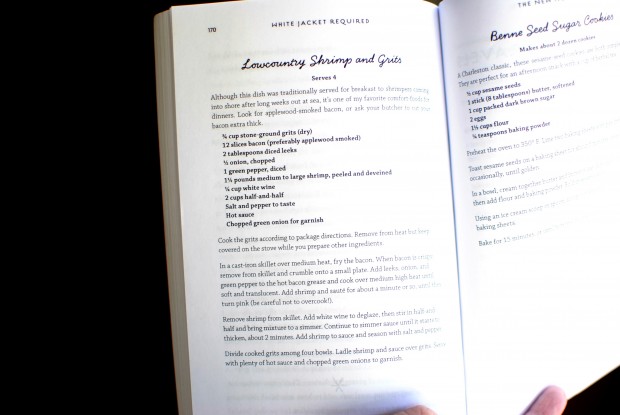 170
WHITE JACKET REQUIRED
Lowcountry Shrimp and Grits
Serves 4
Although this dish was traditionally served for breakfast to shrimpers coming
into shore after long weeks out at sea, it's one of my favorite comfort foods for
dinners. Look for applewood-smoked bacon, or ask your butcher to cut your
bacon extra thick.
¾ cup stone-ground grits (dry)
12 slices bacon (preferably applewood smoked)
2 tablespoons diced leeks
½ onion, chopped
1 green pepper, diced
1½ pounds medium to large shrimp, peeled and deveined
¼ cup white wine
2 cups half-and-half
Salt and pepper to taste
Hot sauce
Chopped green onion for garnish
Cook the grits according to package directions. Remove from heat but keep
covered on the stove while you prepare other ingredients.
In a cast-iron skillet over medium heat, fry the bacon. When bacon is crispy,
remove from skillet and crumble onto a small plate. Add leeks, onion, and
green pepper to the hot bacon grease and cook over medium high heat until
soft and translucent. Add shrimp and sauté for about a minute or so, until they
turn pink (be careful not to overcook!).
Remove shrimp from skillet. Add white wine to deglaze, then stir in half-and-
half and bring mixture to a simmer. Continue to simmer sauce until it starts to
thicken, about 2 minutes. Add shrimp to sauce and season with salt and pepper.
Divide cooked grits among four bowls. Ladle shrimp and sauce over grits. Serve
with plenty of hot sauce and chopped green onions to garnish.
THE NEW
Benne Seed Sugar Cookies
Makes about 2 dozen cookies
A Charleston classic, these sesame seed cookies
They are perfect for an afternoon
¾ cup sesame seeds
1 stick (8 tablespoons) butter, softened
1 cup packed dark brown sugar
2 eggs
1½ cups flour
¾ teaspoons baking powder
Preheat the oven to 350° F. Line
Toast sesame seeds on a baking sheet
occasionally, until golden.
In a bowl, cream together butter
then add flour and baking powder
Using an ice cream scoop
baking sheets.
Bake for 15 minutes, or